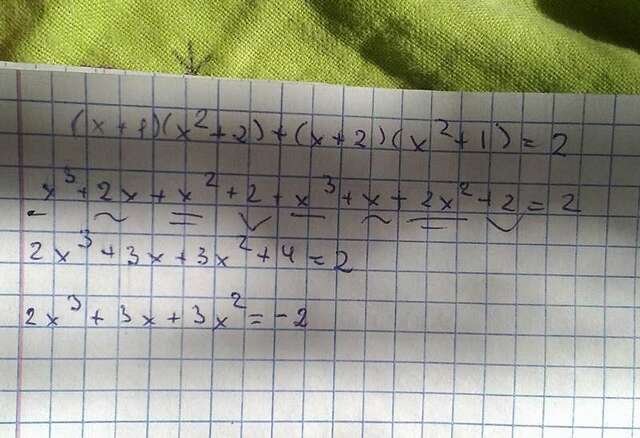 (x+1)(x²+2)+(x+2)(x²+1)=2
x³+2x+x²+2+x³+x+2x²+2=2
2x³+3x+3x²+4=2
2x³+3x+3x²=-2